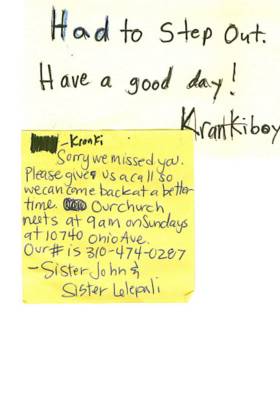 Had to Step Out.
Have a good day!
Krankiboy
-Kranki
Sorry we missed you.
Please give us a call so
we can come back at a better
time. Our church
meets at 9am on Sundays
at 10740 Ohio Ave.
Our # is 310-474-0287
-Sister John &
Sister Lelepali